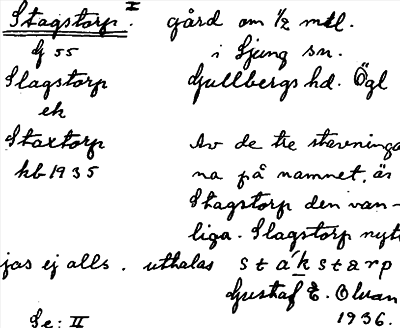 Stagstorp. I gård om 1/2 mtl.
G 55 i Ljung sn.
Slagstorp Gullbergs hd. Ögl
ek
Staxtorp Av de tre stavninga
hb 1935 na på namnet, är
Stagstorp den van-
liga. Slagstorp nytt
jas ej alls. uthalas stákstarp
Gustaf E. Olvan
Se: II 1936.